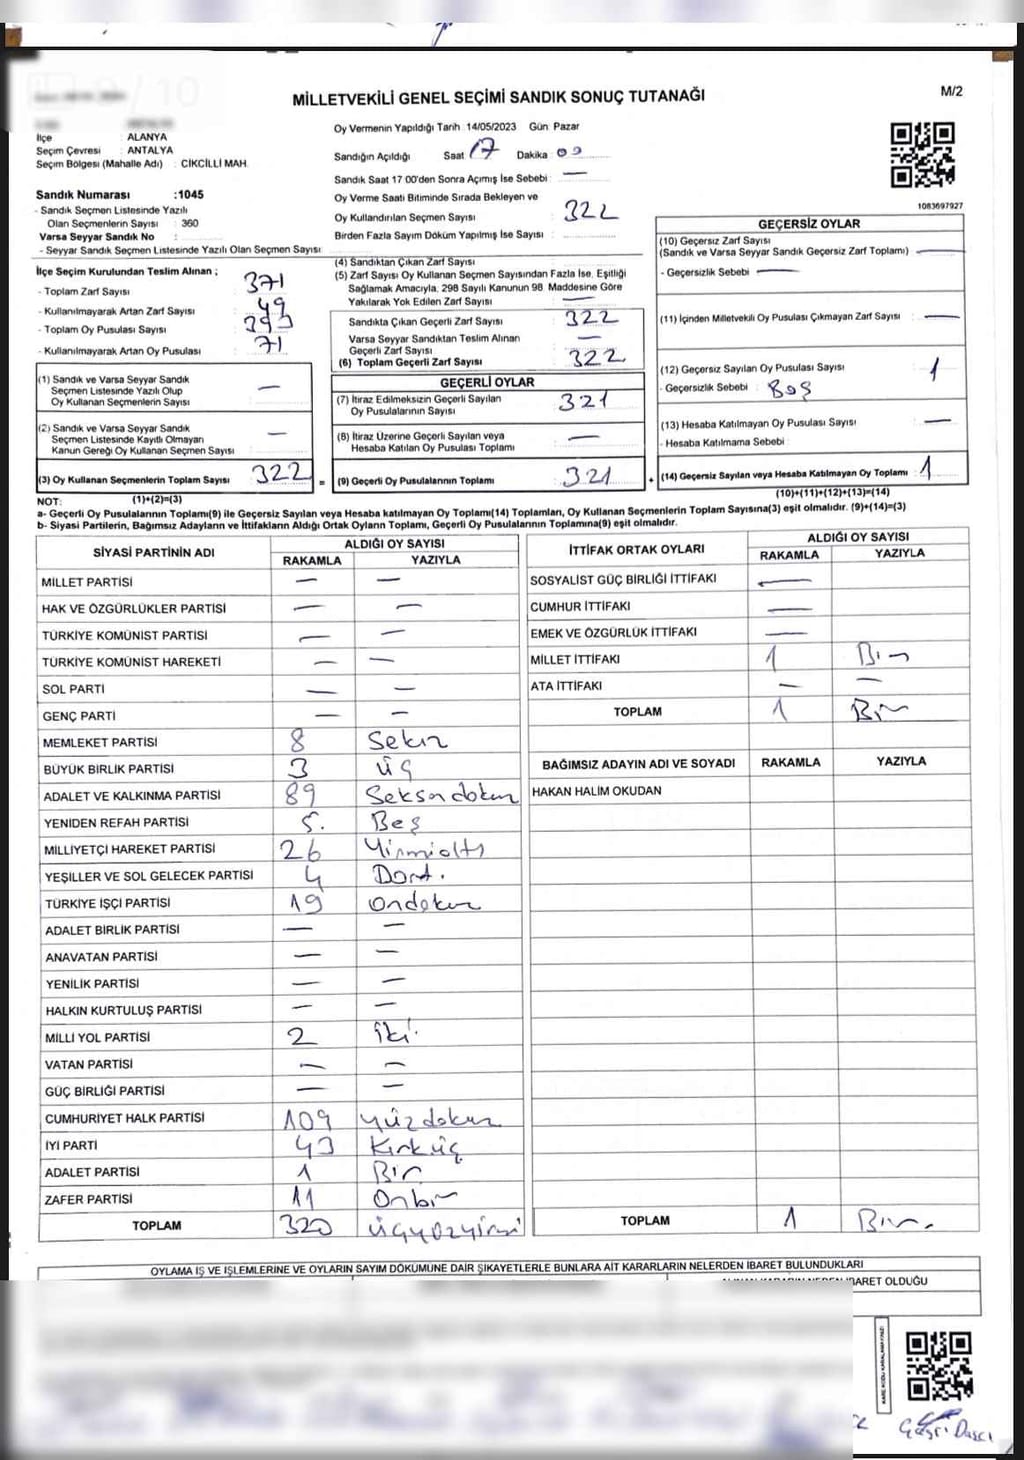 MİLLETVEKİLİ GENEL SEÇİMİ SANDIK SONUÇ TUTANAĞI
M/2
İlçe : ALANYA
Seçim Çevresi : ANTALYA
Seçim Bölgesi (Mahalle Adı) : CİKCİLLİ MAH.
Sandık Numarası :1045
- Sandık Seçmen Listesinde Yazılı
Olan Seçmenlerin Sayısı : 360
Varsa Seyyar Sandık No :
- Seyyar Sandık Seçmen Listesinde Yazılı Olan Seçmen Sayısı:
Oy Vermenin Yapıldığı Tarih :14/05/2023 Gün Pazar
Sandığın Açıldığı Saat 17 Dakika 00
Sandık Saat 17 00'den Sonra Açımış İse Sebebi : —
Oy Verme Saati Bitiminde Sırada Bekleyen ve
Oy Kullandırılan Seçmen Sayısı : 322
Birden Fazla Sayım Döküm Yapılmış İse Sayısı :
1083697927
İlçe Seçim Kurulundan Teslim Alınan ;
- Toplam Zarf Sayısı : 371
- Kullanılmayarak Artan Zarf Sayısı : 49
- Toplam Oy Pusulası Sayısı : 393
- Kullanılmayarak Artan Oy Pusulası : 71
(1) Sandık ve Varsa Seyyar Sandık
Seçmen Listesinde Yazılı Olup
Oy Kullanan Seçmenlerin Sayısı : —
(2) Sandık ve Varsa Seyyar Sandık
Seçmen Listesinde Kayıtlı Olmayan
Kanun Gereği Oy Kullanan Seçmen Sayısı : —
(3) Oy Kullanan Seçmenlerin Toplam Sayısı : 322 =
(4) Sandıktan Çıkan Zarf Sayısı :
(5) Zarf Sayısı Oy Kullanan Seçmen Sayısından Fazla İse, Eşitliği
Sağlamak Amacıyla, 298 Sayılı Kanunun 98. Maddesine Göre
Yakılarak Yok Edilen Zarf Sayısı : —
Sandıkta Çıkan Geçerli Zarf Sayısı : 322
Varsa Seyyar Sandıktan Teslim Alınan
Geçerli Zarf Sayısı : —
(6) Toplam Geçerli Zarf Sayısı : 322
GEÇERLİ OYLAR
(7) İtiraz Edilmeksizin Geçerli Sayılan
Oy Pusulalarının Sayısı : 321
(8) İtiraz Üzerine Geçerli Sayılan veya
Hesaba Katılan Oy Pusulası Toplamı : —
(9) Geçerli Oy Pusulalarının Toplamı : 321 +
GEÇERSİZ OYLAR
(10) Geçersiz Zarf Sayısı
(Sandık ve Varsa Seyyar Sandık Geçersiz Zarf Toplamı) : —
- Geçersizlik Sebebi : —
(11) İçinden Milletvekili Oy Pusulası Çıkmayan Zarf Sayısı : —
(12) Geçersiz Sayılan Oy Pusulası Sayısı : 1
- Geçersizlik Sebebi : Boş
(13) Hesaba Katılmayan Oy Pusulası Sayısı : —
- Hesaba Katılmama Sebebi :
(14) Geçersiz Sayılan veya Hesaba Katılmayan Oy Toplamı : 1
NOT: (1)+(2)=(3)
(10)+(11)+(12)+(13)=(14)
a- Geçerli Oy Pusulalarının Toplamı(9) ile Geçersiz Sayılan veya Hesaba katılmayan Oy Toplamı(14) Toplamları, Oy Kullanan Seçmenlerin Toplam Sayısına(3) eşit olmalıdır. (9)+(14)=(3)
b- Siyasi Partilerin, Bağımsız Adayların ve İttifakların Aldığı Ortak Oyların Toplamı, Geçerli Oy Pusulalarının Toplamına(9) eşit olmalıdır.
SİYASİ PARTİNİN ADI ALDIĞI OY SAYISI
RAKAMLA YAZIYLA
MİLLET PARTİSİ — —
HAK VE ÖZGÜRLÜKLER PARTİSİ — —
TÜRKİYE KOMÜNİST PARTİSİ — —
TÜRKİYE KOMÜNİST HAREKETİ — —
SOL PARTİ — —
GENÇ PARTİ — —
MEMLEKET PARTİSİ 8 Sekiz
BÜYÜK BİRLİK PARTİSİ 3 üç
ADALET VE KALKINMA PARTİSİ 89 Seksendokuz
YENİDEN REFAH PARTİSİ 5. Beş
MİLLİYETÇİ HAREKET PARTİSİ 26 Yirmialtı
YEŞİLLER VE SOL GELECEK PARTİSİ 4 Dört.
TÜRKİYE İŞÇİ PARTİSİ 19 Ondokuz
ADALET BİRLİK PARTİSİ — —
ANAVATAN PARTİSİ — —
YENİLİK PARTİSİ — —
HALKIN KURTULUŞ PARTİSİ — —
MİLLİ YOL PARTİSİ 2 İki.
VATAN PARTİSİ — —
GÜÇ BİRLİĞİ PARTİSİ — —
CUMHURİYET HALK PARTİSİ 109 Yüzdokuz
İYİ PARTİ 43 Kırküç
ADALET PARTİSİ 1 Bir
ZAFER PARTİSİ 11 Onbir
TOPLAM 320 üçyüzyirmi
İTTİFAK ORTAK OYLARI ALDIĞI OY SAYISI
RAKAMLA YAZIYLA
SOSYALİST GÜÇ BİRLİĞİ İTTİFAKI —
CUMHUR İTTİFAKI —
EMEK VE ÖZGÜRLÜK İTTİFAKI —
MİLLET İTTİFAKI 1 Bir
ATA İTTİFAKI — —
TOPLAM 1 Bir
BAĞIMSIZ ADAYIN ADI VE SOYADI RAKAMLA YAZIYLA
HAKAN HALİM OKUDAN
TOPLAM 1 Bir.
OYLAMA İŞ VE İŞLEMLERİNE VE OYLARIN SAYIM DÖKÜMÜNE DAİR ŞİKAYETLERLE BUNLARA AİT KARARLARIN NELERDEN İBARET BULUNDUKLARI
İBARET OLDUĞU